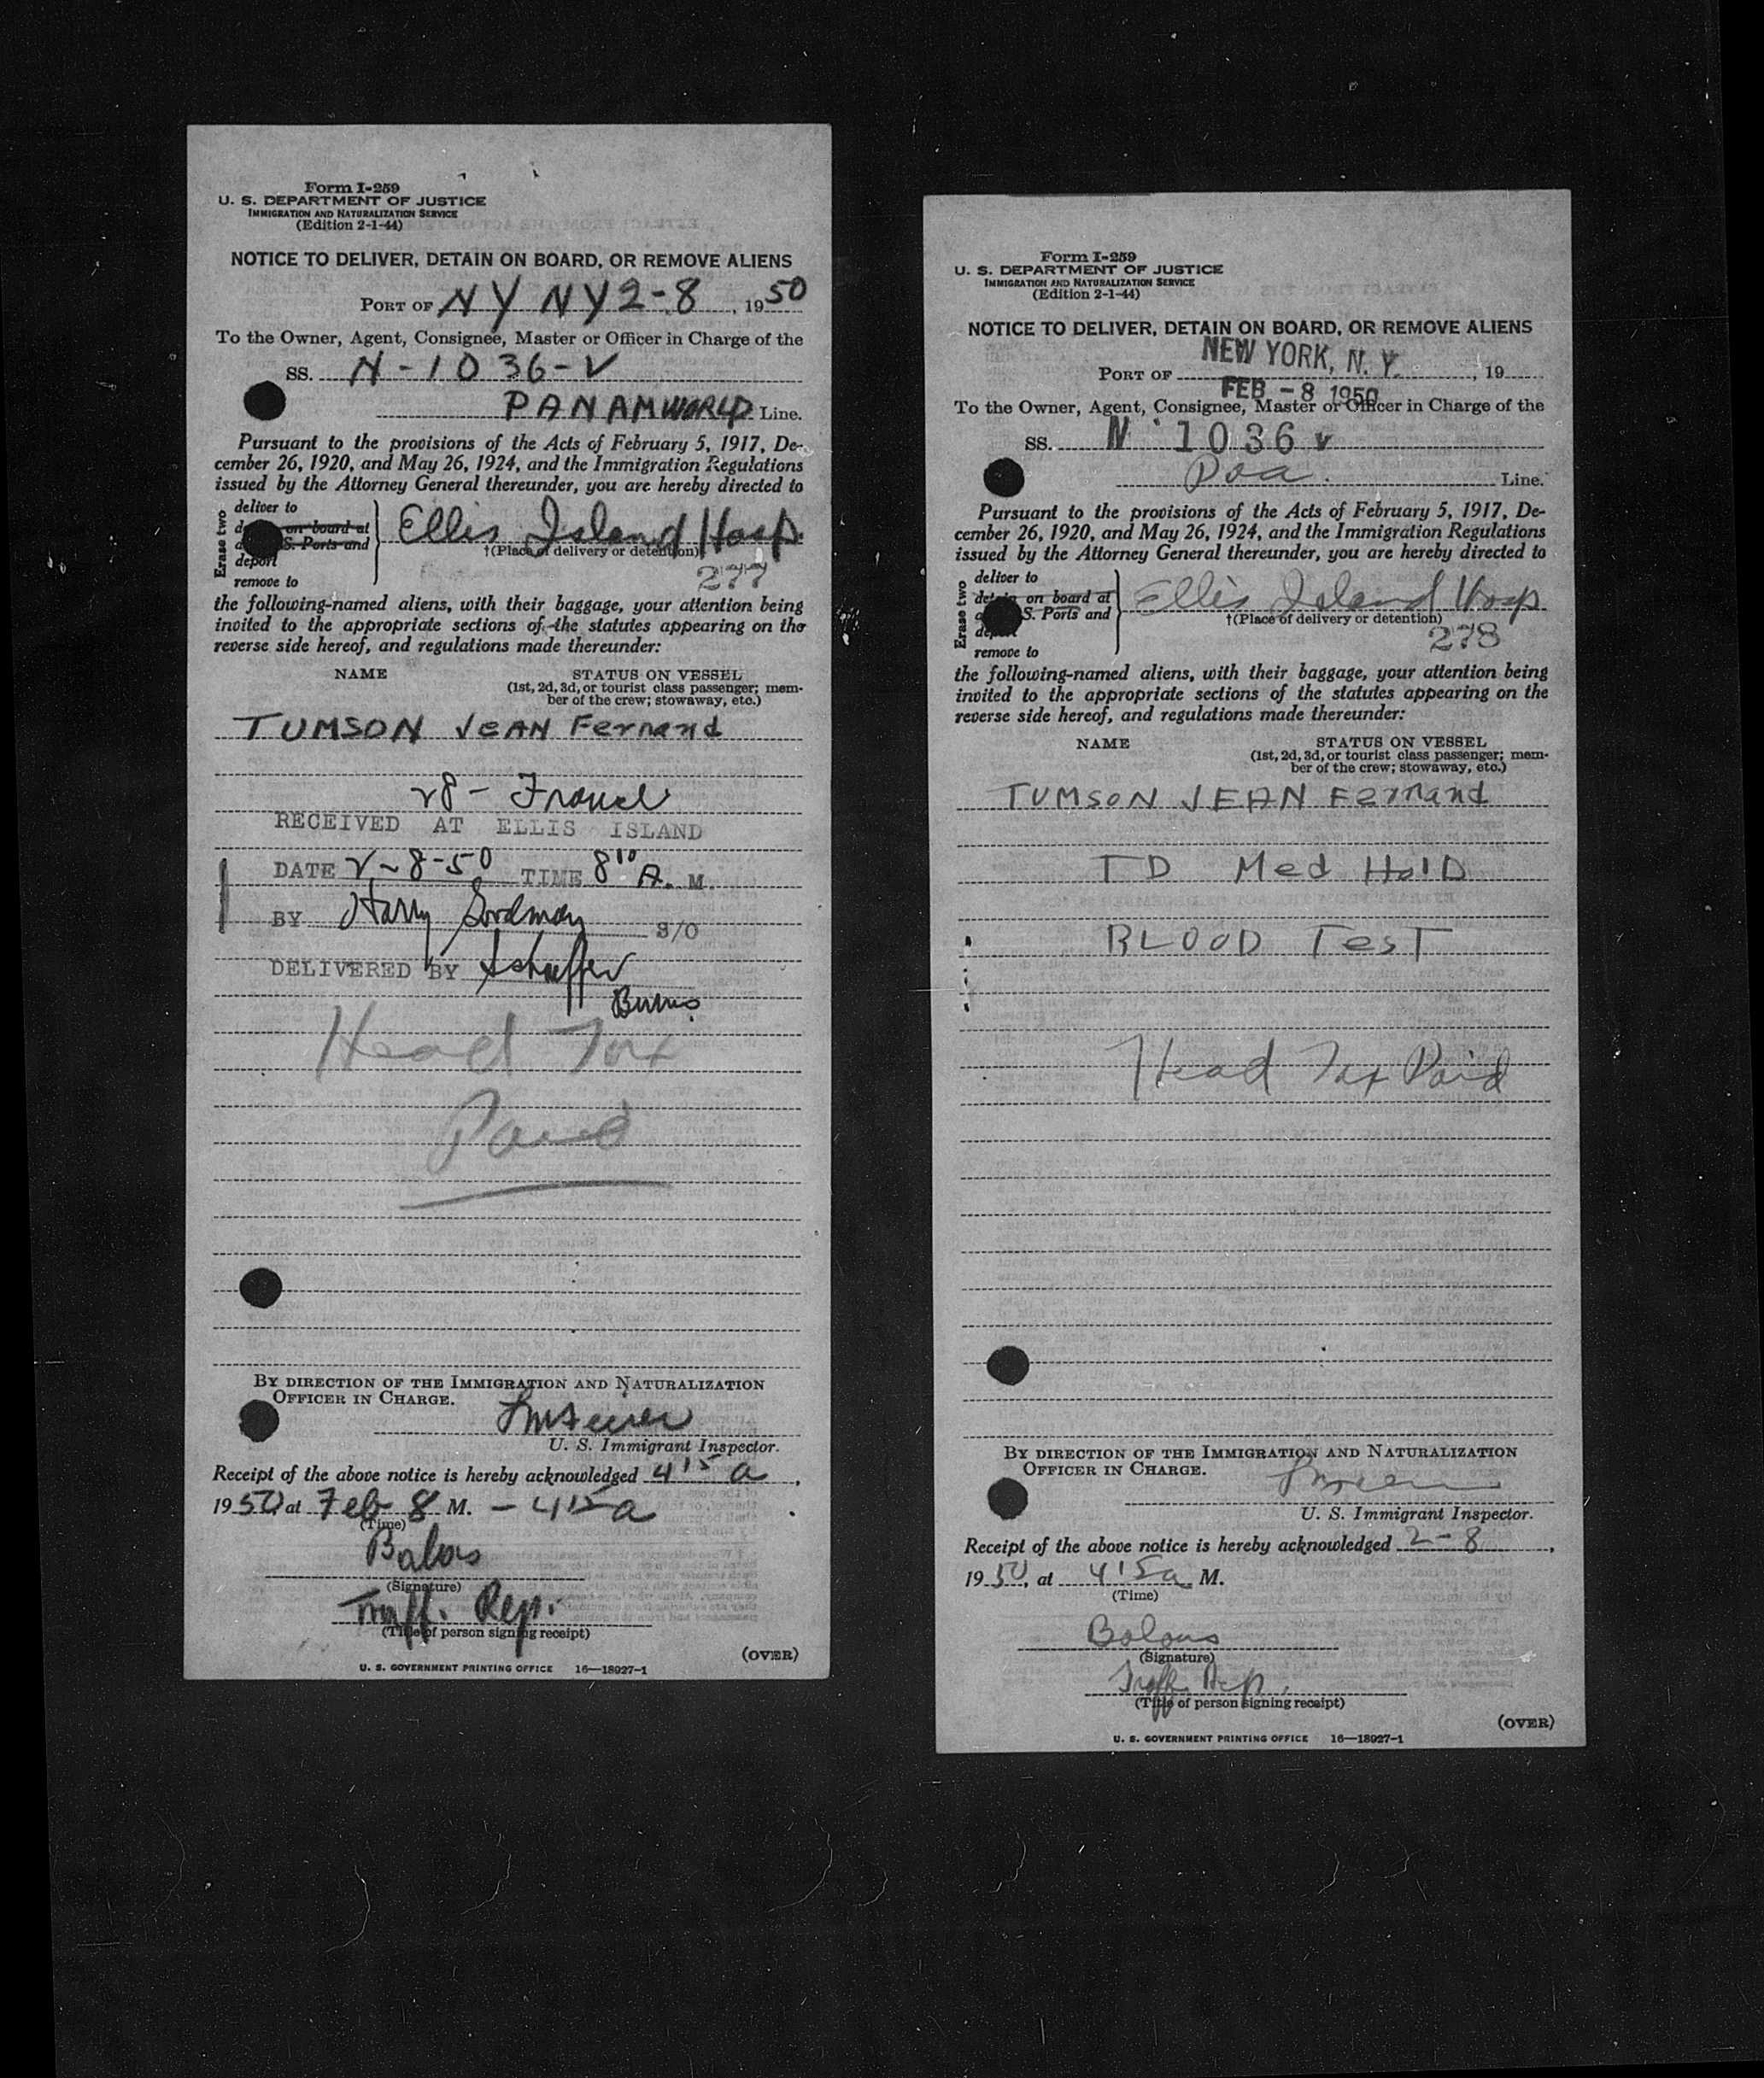 Form I-259
U. S. DEPARTMENT OF JUSTICE
IMMIGRATION AND NATURALIZATION SERVICE
(Edition 2-1-44)
NOTICE TO DELIVER, DETAIN ON BOARD, OR REMOVE ALIENS
PORT OF N Y N Y 2-8, 1950
To the Owner, Agent, Consignee, Master or Officer in Charge of the
SS. N-1036-V
PANAMWORLD Line.
Pursuant to the provisions of the Acts of February 5, 1917, De-
cember 26, 1920, and May 26, 1924, and the Immigration Regulations
issued by the Attorney General thereunder, you are hereby directed to
Erase two
deliver to
on board at
S. Ports and
deport
remove to
Ellis Island Hosp.
†(Place of delivery or detention)
277
the following-named aliens, with their baggage, your attention being
invited to the appropriate sections of the statutes appearing on the
reverse side hereof, and regulations made thereunder:
NAME STATUS ON VESSEL
(1st, 2d, 3d, or tourist class passenger; mem-
ber of the crew; stowaway, etc.)
TUMSON JEAN Fernand
28 -
RECEIVED AT ELLIS ISLAND
DATE 2-8-50 TIME 8 10 A. M.
BY Harry Goodman S/O
DELIVERED BY
Burns
Head Tax
Paid
BY DIRECTION OF THE IMMIGRATION AND NATURALIZATION
OFFICER IN CHARGE.
U. S. Immigrant Inspector.
Receipt of the above notice is hereby acknowledged 4 15 a,
1950 at Feb 8 M. - 4 15 a
(Time)
(Signature)
Traff. Rep.
(Title of person signing receipt)
(OVER)
U. S. GOVERNMENT PRINTING OFFICE 16—18027-1
Form I-259
U. S. DEPARTMENT OF JUSTICE
IMMIGRATION AND NATURALIZATION SERVICE
(Edition 2-1-44)
NOTICE TO DELIVER, DETAIN ON BOARD, OR REMOVE ALIENS
NEW YORK, N. Y.
PORT OF , 19
FEB - 8 1950
To the Owner, Agent, Consignee, Master or Officer in Charge of the
SS. N 1036 V
Paa. Line.
Pursuant to the provisions of the Acts of February 5, 1917, De-
cember 26, 1920, and May 26, 1924, and the Immigration Regulations
issued by the Attorney General thereunder, you are hereby directed to
Erase two
deliver to
detain on board at
S. Ports and
remove to
Ellis Island Hosp
†(Place of delivery or detention)
278
the following-named aliens, with their baggage, your attention being
invited to the appropriate sections of the statutes appearing on the
reverse side hereof, and regulations made thereunder:
NAME STATUS ON VESSEL
(1st, 2d, 3d, or tourist class passenger; mem-
ber of the crew; stowaway, etc.)
TUMSON JEAN Fernand
TD Med HolD
BLOOD TesT
Head Tax Paid
BY DIRECTION OF THE IMMIGRATION AND NATURALIZATION
OFFICER IN CHARGE.
U. S. Immigrant Inspector.
Receipt of the above notice is hereby acknowledged 2-8,
1950, at 4 15 a M.
(Time)
(Signature)
Traff. Rep.
(Title of person signing receipt)
(OVER)
U. S. GOVERNMENT PRINTING OFFICE 16—18027-1